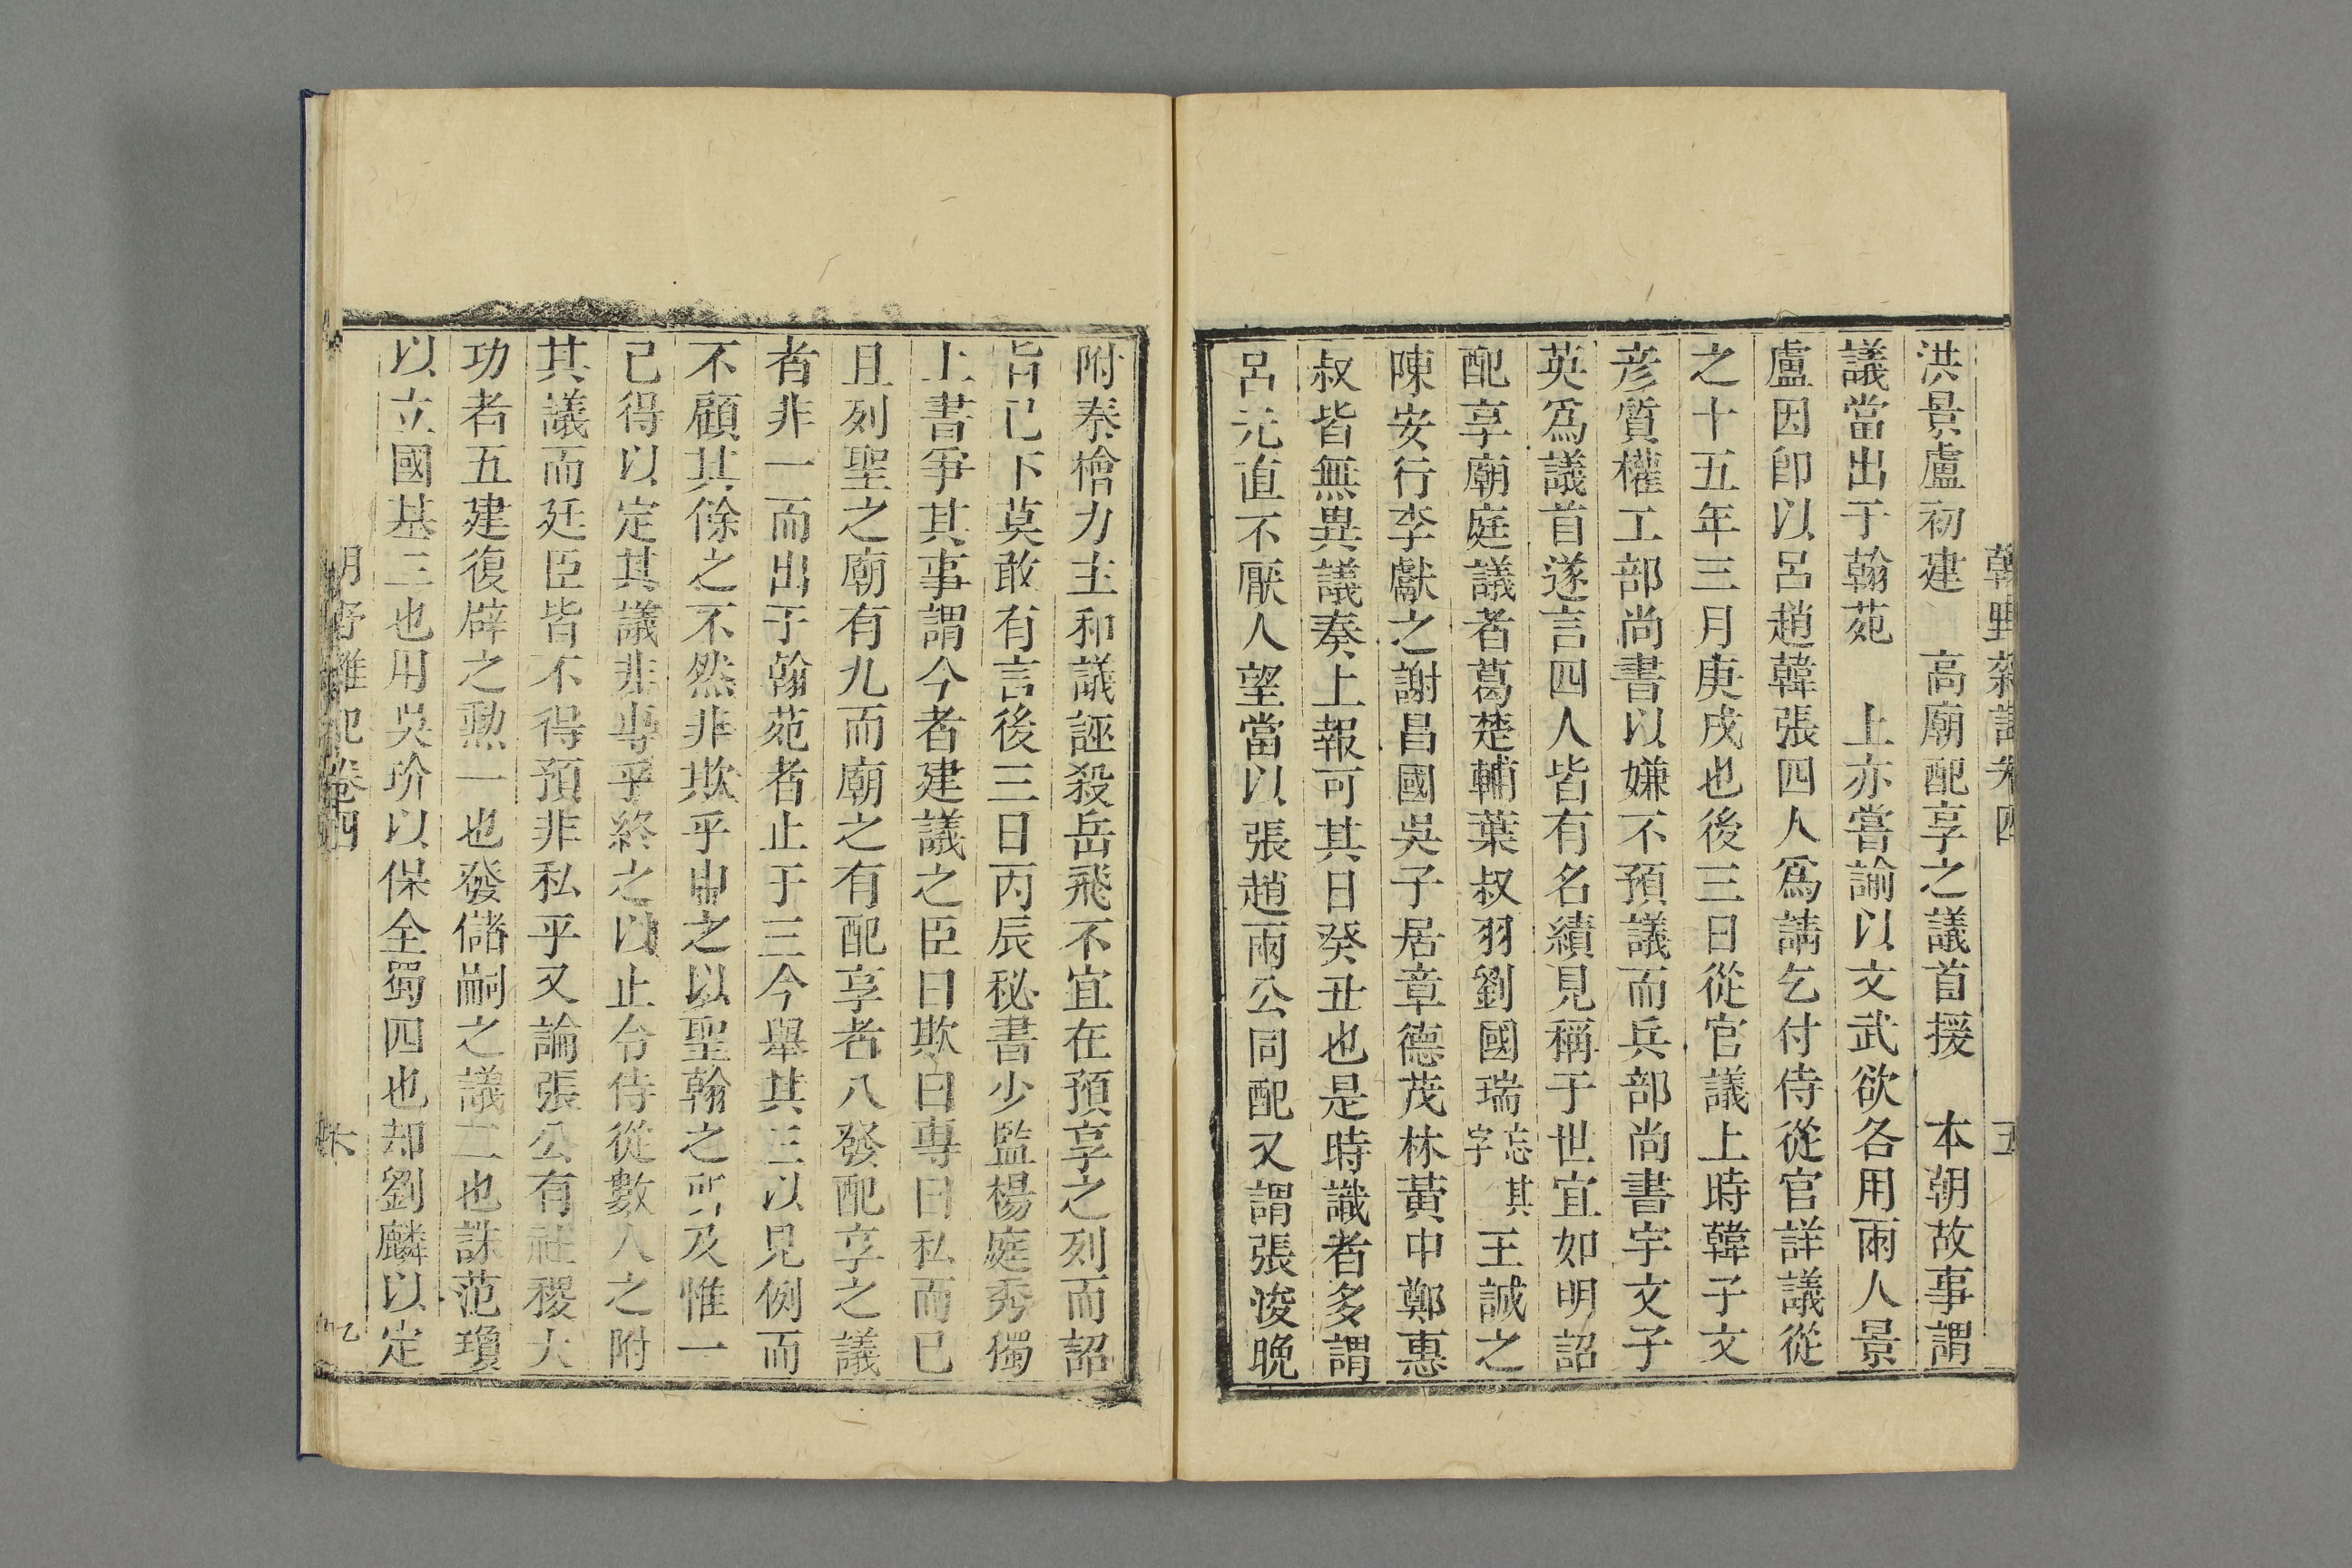 洪景盧初建　高廟配享之議首援　本朝故事謂
議當出于翰苑　上亦嘗諭以文武欲各用兩人景
盧因卽以呂趙韓張四人爲請乞付侍從官詳議從
之十五年三月庚戌也後三日從官議上時韓子文
彦質權工部尚書以嫌不預議而兵部尚書宇文子
英爲議首遂言四人皆有名績見稱于世宜如明詔
配享廟庭議者葛楚輔葉叔羽劉國瑞忘其字王誠之
陳安行李獻之謝昌國吳子居章德茂林黃中鄭惠
叔皆無異議奏上報可其日癸丑也是時識者多謂
呂元直不厭人望當以張趙兩公同配又謂張浚晚
附秦檜力主和議誣殺岳飛不宜在預享之列而詔
旨已下莫敢有言後三日丙辰秘書少監楊庭秀獨
上書爭其事謂今者建議之臣曰欺曰專曰私而已
且列聖之廟有九而廟之有配享者八發配享之議
者非一而出于翰苑者止于三今舉其三以見例而
不顧其餘之不然非欺乎申之以聖翰之所及惟一
己得以定其議非專乎終之以止令侍從數人之附
其議而廷臣皆不得預非私乎又論張公有社稷大
功者五建復辟之勲一也發儲嗣之議二也誅范瓊
以立國基三也用吳玠以保全蜀四也却劉麟以定
卷四
六